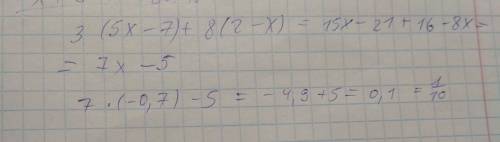 3 (5x-7)+ 8(2-x) = 15x-21+16-8x=
= 7x -5
7 ·(-0,7) -5 = -4,9+5=0,1 = 1/10